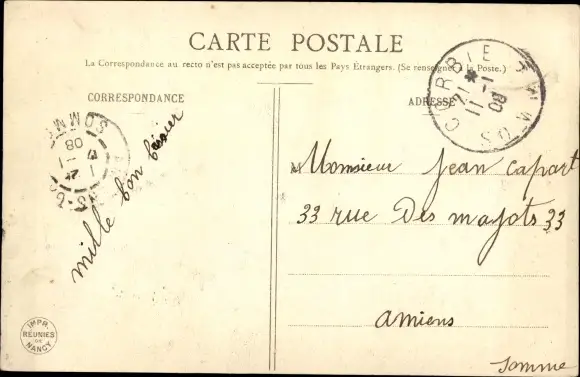 CARTE POSTALE
La Correspondance au recto n'est pas acceptée par tous les Pays Étrangers. (Se renseigner à la Poste.)
CORRESPONDANCE
ADRESSE
CORBIE
SOMME
21
11
-1
08
SOMME
08
-1
mille bon baisier
Monsieur Jean Capart
33 rue Des majots 33
amiens
Somme
IMPR.
RÉUNIES
DE
NANCY